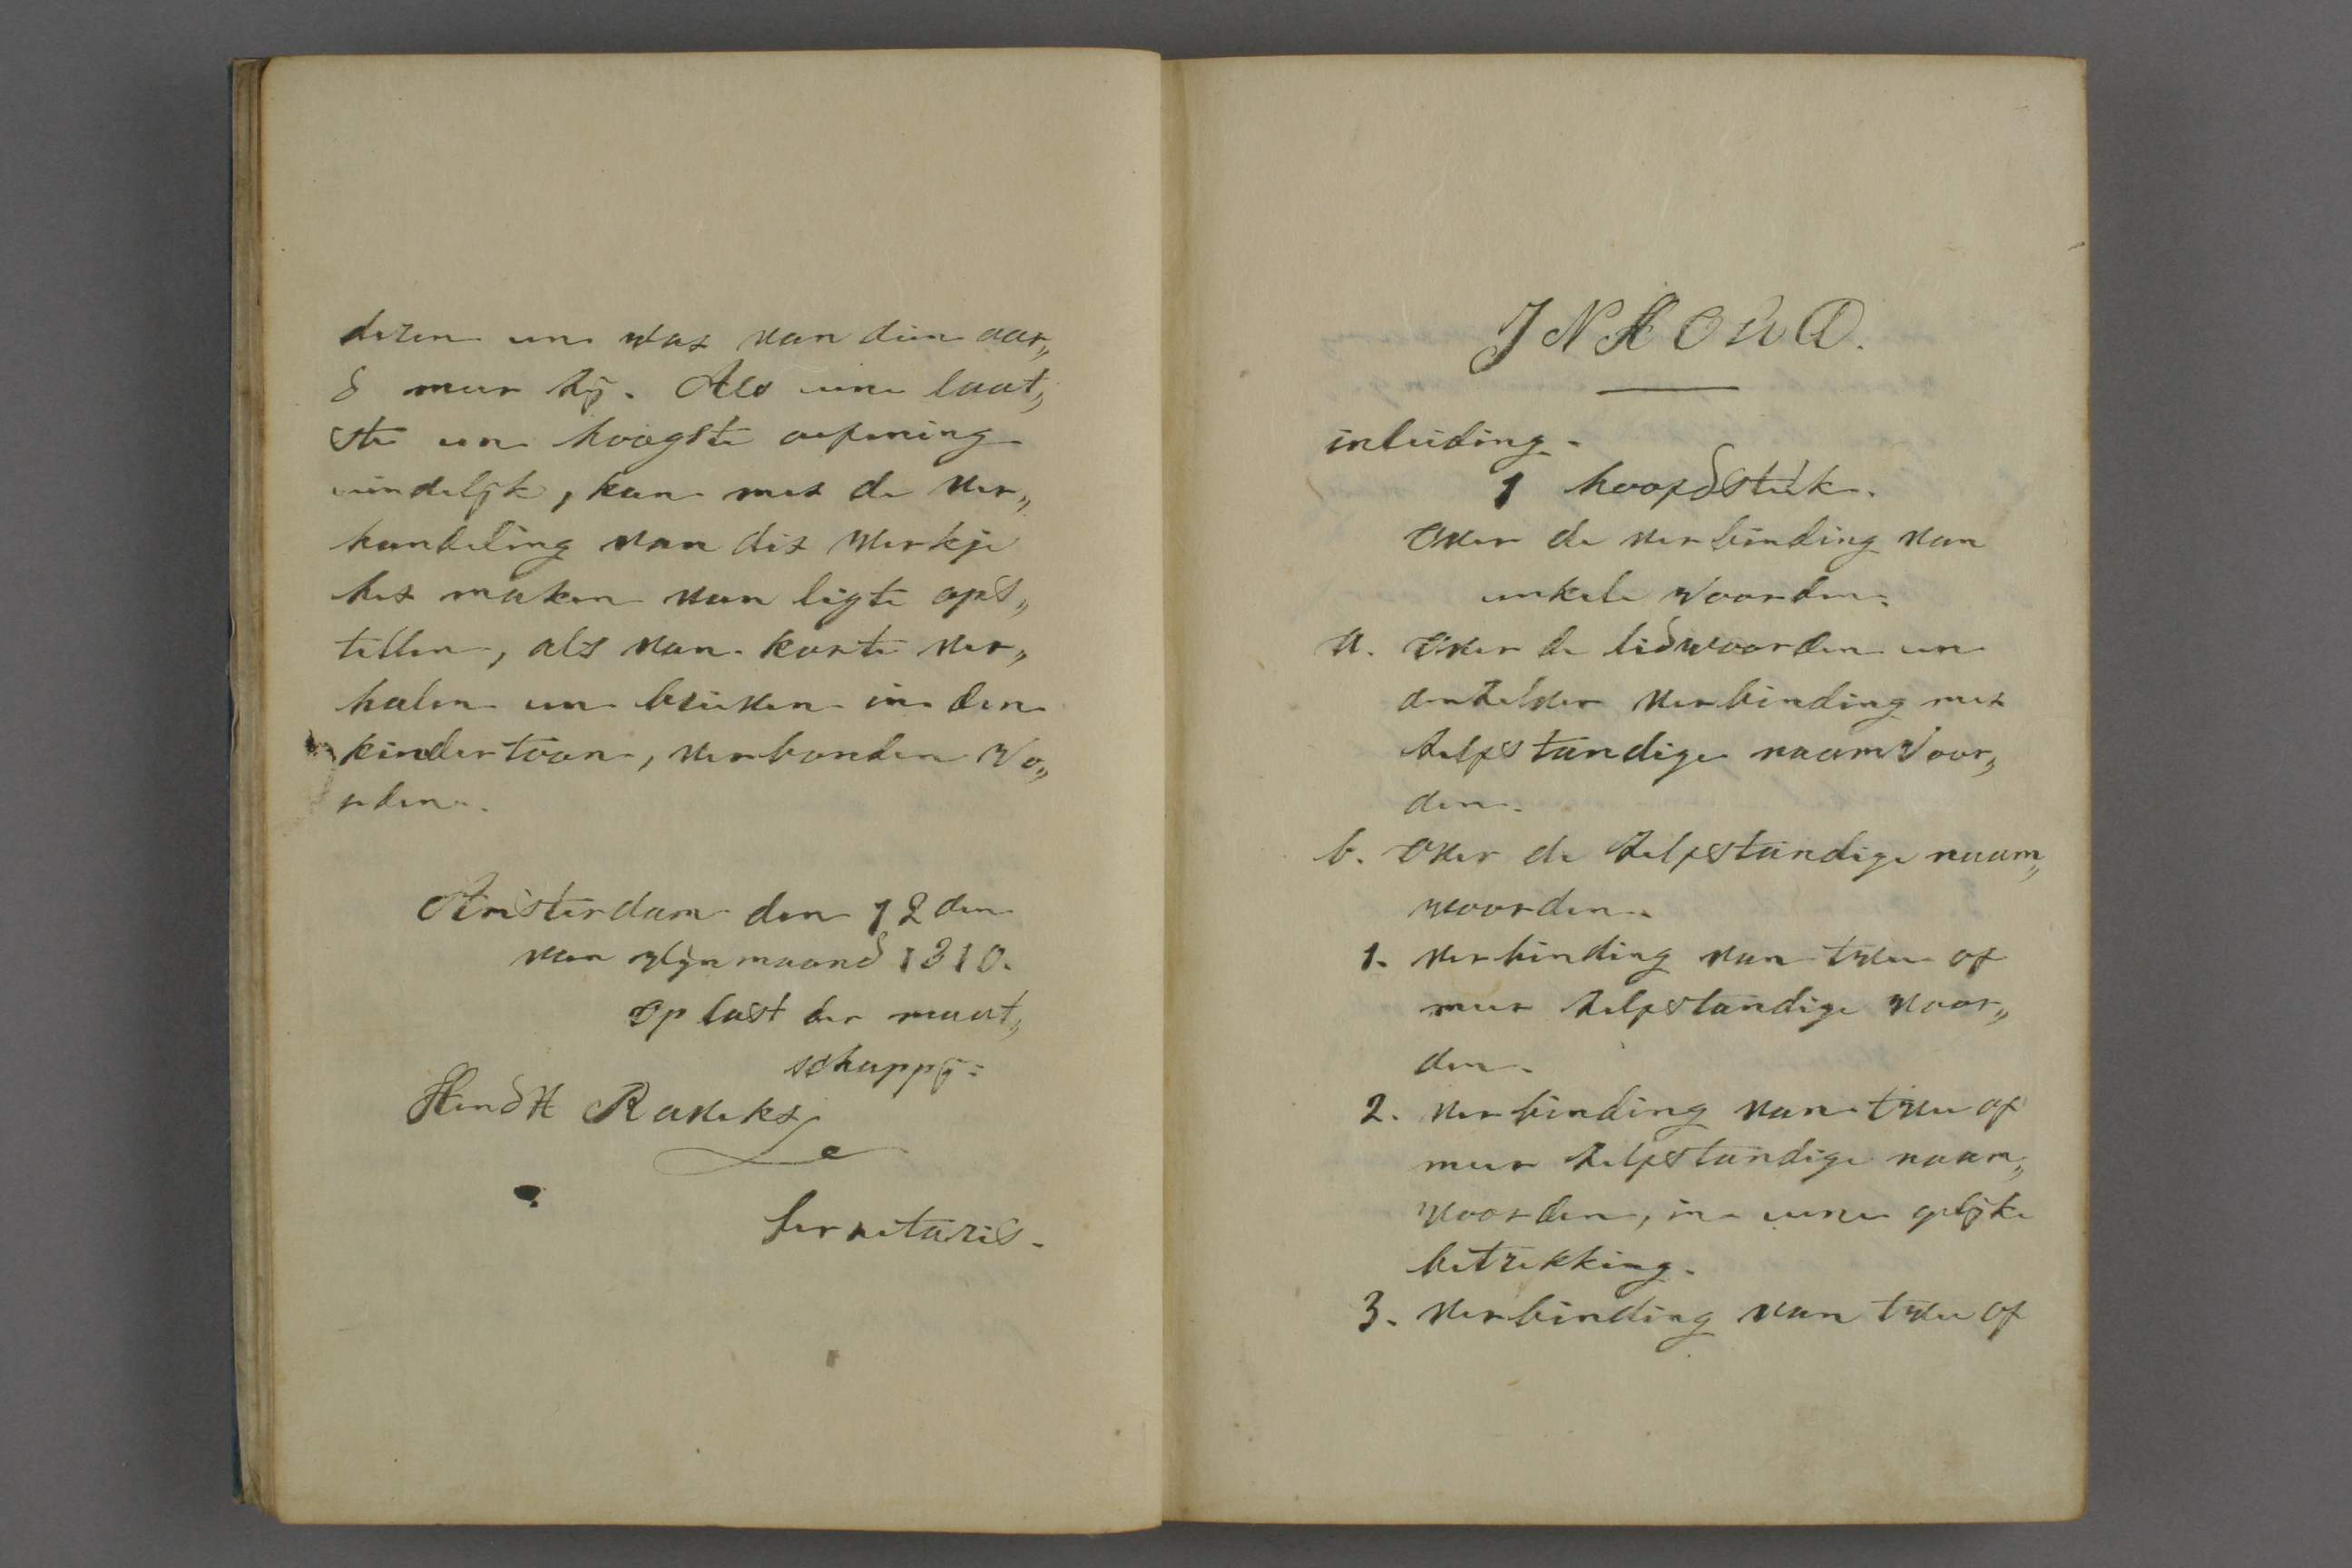 deren en wat van dien aar„
d meer zij. Als eene laat„
ste en hoogste oefening
eindelijk, kan met de ver„
handeling van dit werkje
het maken van ligte ops„
tellen, als van korte ver„
halen en brieven in den
kindertoon, verbonden wo„
rden.
Amsterdam den 12den
van wijnmaand 1810.
Op last der maat„
schappij:
Hendk Ravekes
Secretaris.
INHOUD.
inleiding.
1 hoofdstuk.
Over de verbinding van
enkele woorden.
a. Over de lidwoorden en
derzelver verbinding met
zelfstandige naamwoor„
den.
b. Over de zelfstandige naam„
woorden.
1. verbinding van twee of
meer zelfstandige woor„
den.
2. verbinding van twee of
meer zelfstandige naam„
woorden, in eene gelijke
betrekking.
3. verbinding van twee of